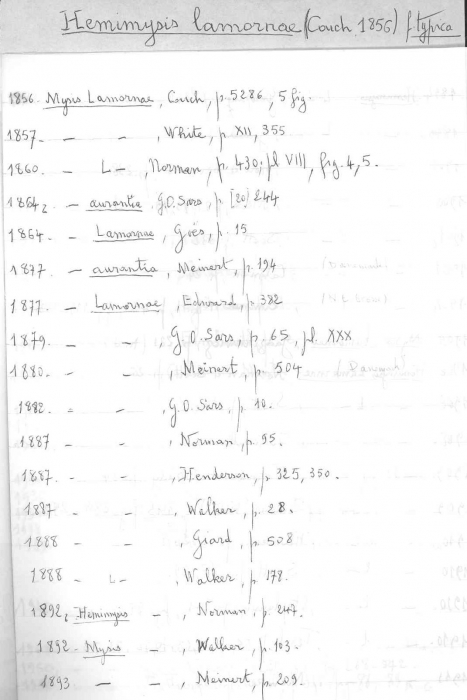 Hemimysis lamornae (Couch 1856) f. typica
1856 Mysis Lamornae, Couch, p. 5286, 5 fig.
1857. — — , White, p. XII, 355
1860. — L— , Norman, p. 430; pl VIII, fig. 4, 5.
1864₂ — aurantia, G.O. Sars, p. [20] 244
1864 — Lamornae, Goës, p. 15
1877 — aurantia, Meinert, p. 194
1877. — Lamornae, Edward, p. 382
1879. — — , G.O. Sars, p. 65, pl. XXX
1880. — — , Meinert, p. 504
1882. — — , G.O. Sars, p. 10.
1887 — — , Norman, p. 95.
1887. — — , Henderson, p. 325, 350.
1887 — — , Walker, p. 28.
1888 — — , Giard, p. 508
1888 — L— , Walker, p. 178.
1892₂ Hemimysis — , Norman, p. 247.
1892 — Mysis — , Walker, p. 103.
1893 — — , Meinert, p. 209.